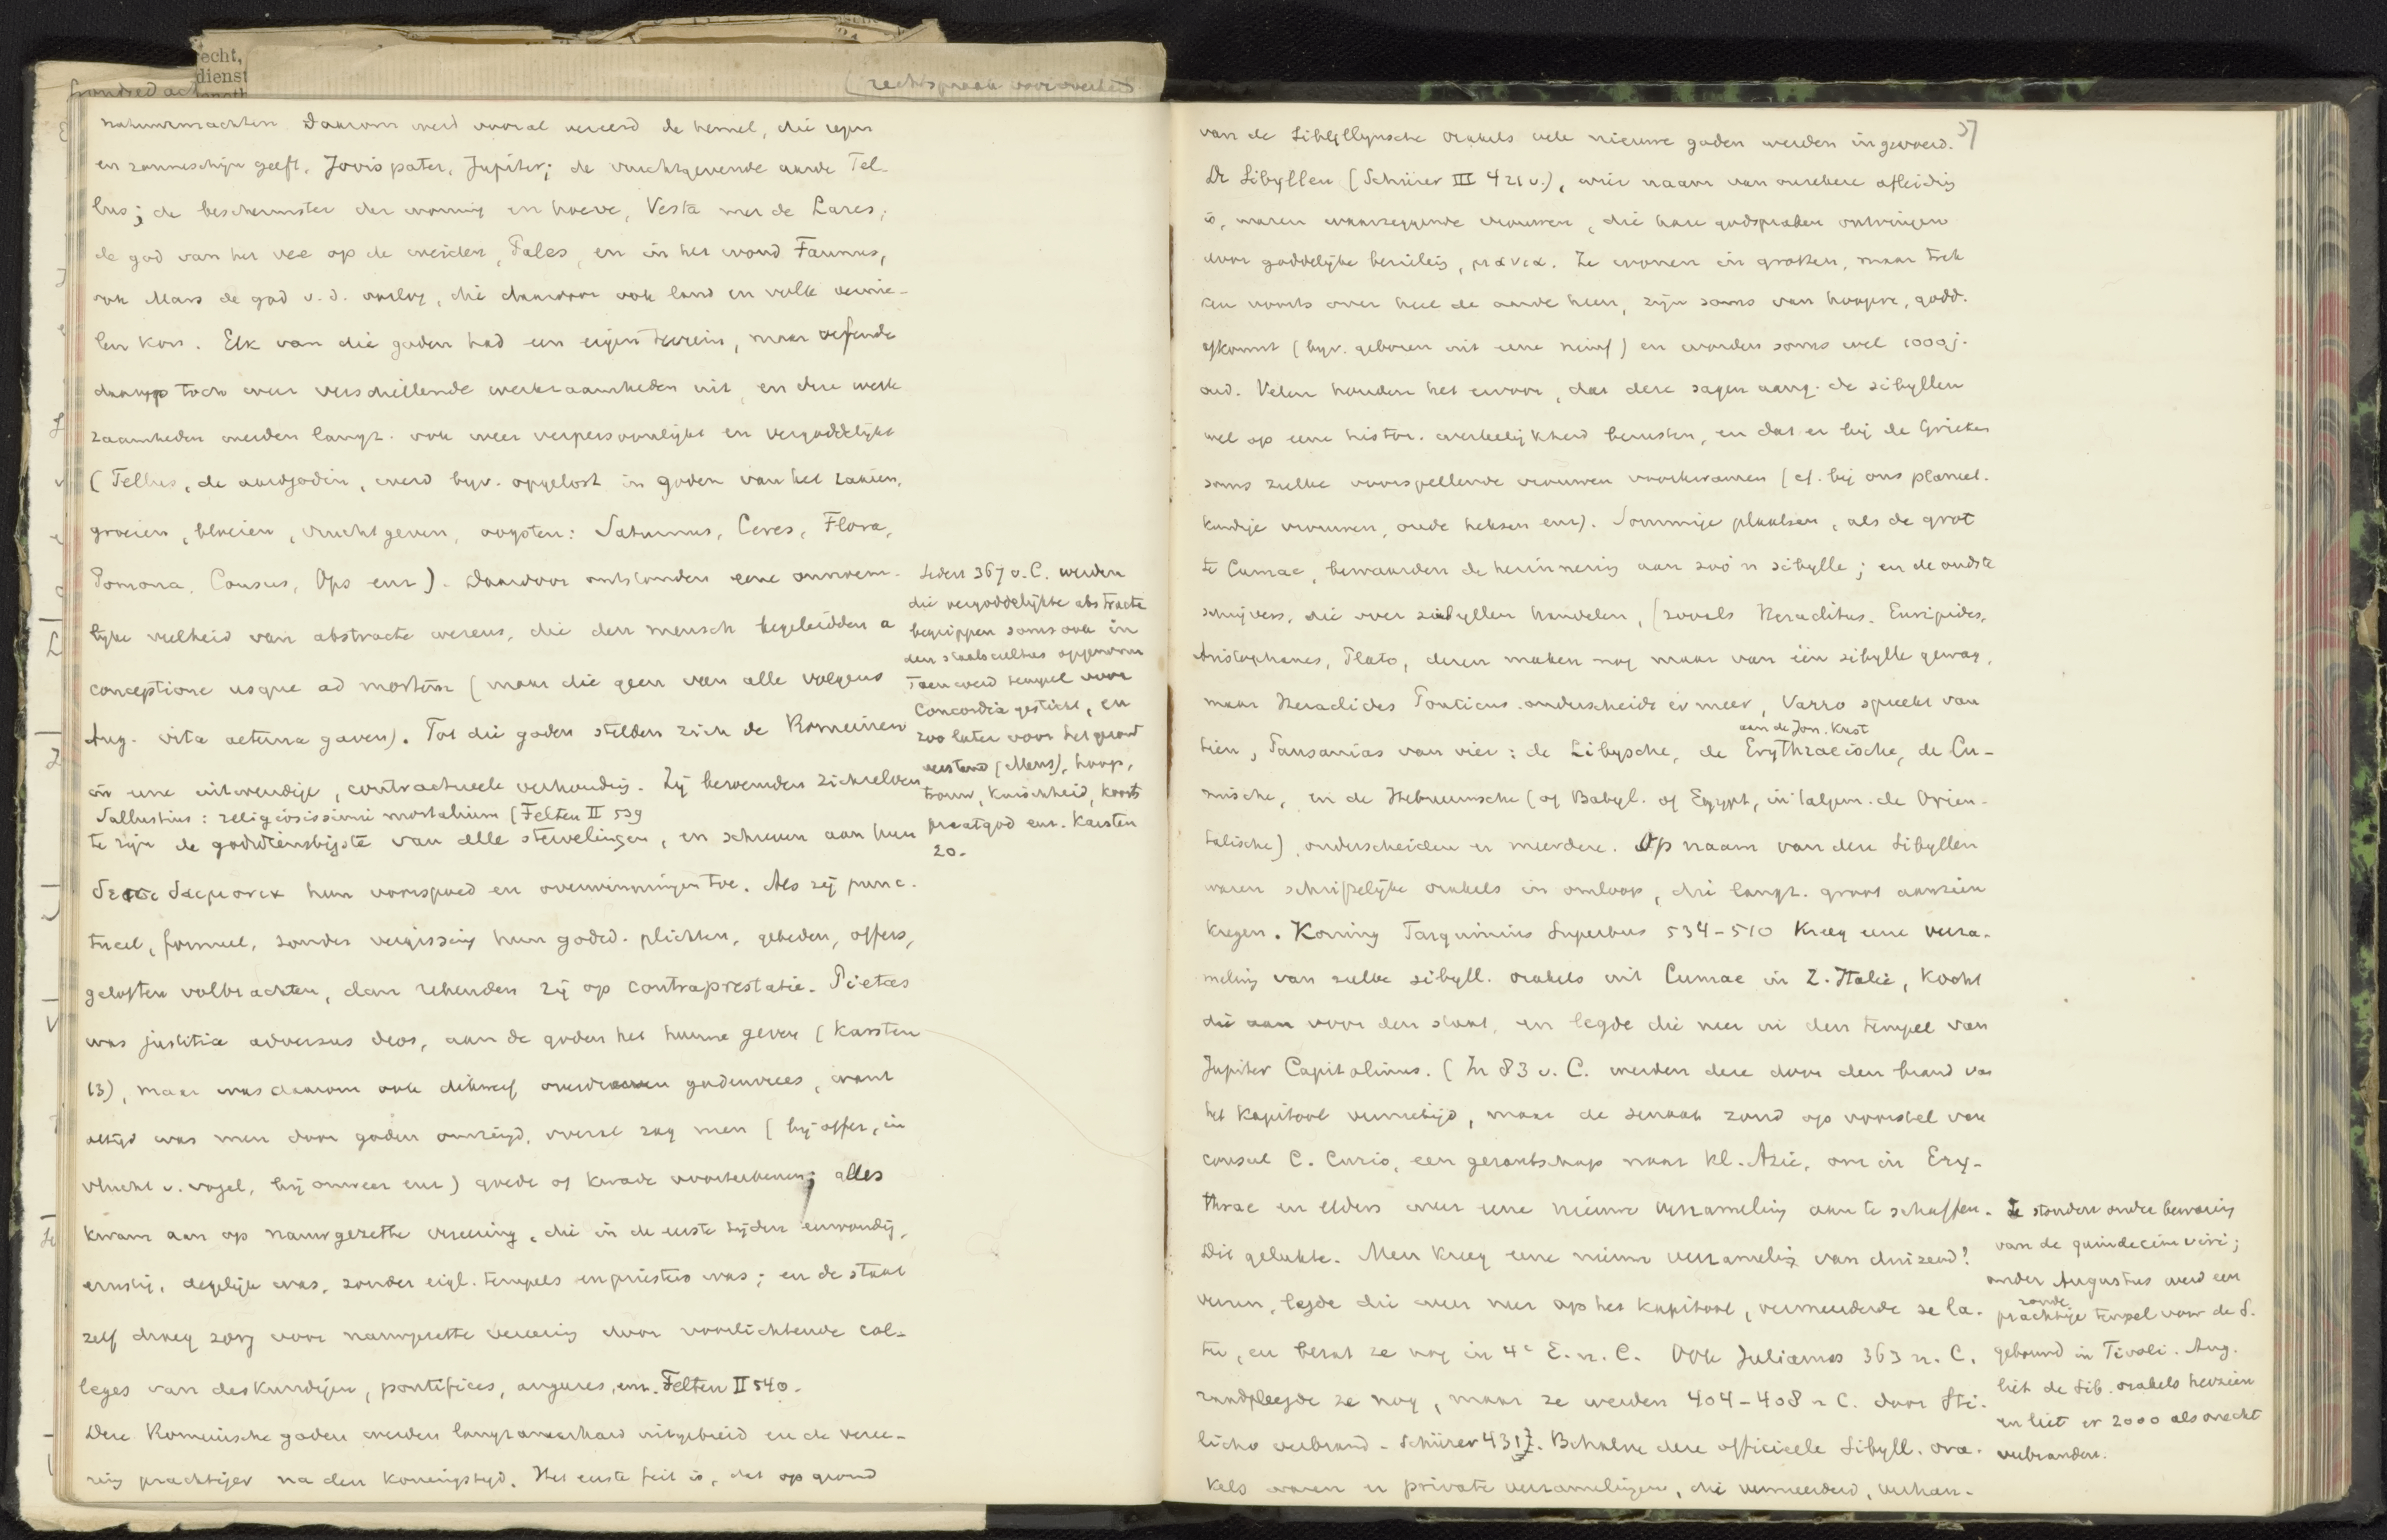 echt,
dienst
rechtspraak voor overheid
natuurmachten. Daarom werd vooral vereerd de hemel, die regen
en zonneschijn geeft, Jovis pater, Jupiter; de vruchtgevende aarde Tel-
lus; de beschermster der woning en hoeve, Vesta met de Lares;
de god van het vee op de weiden, Pales, en in het woud Faunus,
ook Mars de god v.d. oorlog, die daardoor ook land en volk vernie-
len kon. Elk van die goden had een eigen terrein, maar oefende
daarop toch weer verschillende werkzaamheden uit, en deze werk-
zaamheden werden langz. ook weer verpersoonlijkt en vergoddelijkt
(Tellus, de aardgodin, werd bijv. opgelost in goden van het zaaien,
groeien, bloeien, vruchtgeven, oogsten: Saturnus, Ceres, Flora,
Pomona, Consus, Ops enz). Daardoor ontstonden eene onnoem-
lijke veelheid van abstracte wezens, die den mensch begeleidden a
conceptione usque ad mortem (maar die geen van alle volgens
Aug. vita aeterna gaven). Tot die goden stelden zich de Romeinen
in eene uitwendige, contractueele verhouding. Zij beroemden zichzelven
Sallustius: religiosissimi mortalium (Felten II 539
te zijn de godsdienstigste van alle stervelingen, en schreven aan hun
hun voorspoed en overwinningen toe. Als zij punc-
tueel, formeel, zonder vergissing hun godsd. plichten, gebeden, offers,
geloften volbrachten, dan rekenden zij op contraprestatie. Pietas
was justitia adversus deos, aan de goden het hunne geven (Karsten
13), maar was daarom ook dikwerf godenvrees, want
altijd was men door goden omringd, overal zag men (bij offer, in
vlucht v. vogel, bij onweer enz) goede of kwade voorteekenen; alles
kwam aan op nauwgezette vereering, die in de eerste tijden eenvoudig,
ernstig, degelijk was, zonder eigl. tempels en priesters was; en de staat
zelf droeg zorg voor nauwgezette vereering door voorlichtende col-
leges van deskundigen, pontifices, augures, enz. Felten II 540.
Deze Romeinsche goden werden langzamerhand uitgebreid en de veree-
ring prachtiger na den koningstijd. Het eerste feit is, dat op grond
Sedert 367 v. C. werden
die vergoddelijkte abstracte
begrippen soms ook in
den staatscultus opgenomen
Toen werd tempel voor
Concordia gesticht, en
zoo later voor het goed
verstand (Mens), hoop,
trouw, kuischheid, koorts
praatgod enz. Karsten
20.
37
van de Sibyllynsche orakels vele nieuwe goden werden ingevoerd.
De Sibyllen (Schürer III 421 v.), wier naam van onzekere afleiding
is, waren waarzeggende vrouwen, die hare godspraken ontvingen
door goddelijke bezieling, μανια. Ze wonen in grotten, maar trek
ken voorts over heel de aarde heen, zijn soms van hoogere, godd.
afkomst (bijv. geboren uit eene nimf) en worden soms wel 1000 j.
oud. Velen houden het ervoor, dat deze sagen aang. de sibyllen
wel op eene histor. werkelijkheid berusten, en dat er bij de Grieken
soms zulke voorspellende vrouwen voorkwamen (cf. bij ons planeet-
kundige vrouwen, oude heksen enz). Sommige plaatsen, als de grot
te Cumae, bewaarden de herinnering aan zoo'n sibylle; en de oudste
schrijvers, die over sibyllen handelen, (zooals Heraclitus, Euripides,
Aristophanes, Plato, dezen maken nog maar van één sibylle gewag,
maar Heraclides Ponticus onderscheidt er meer, Varro spreekt van
aan de Jon. Kust
tien, Pausanias van vier: de Libysche, de Erythraeische, de Cu-
mische, en de Hebreeuwsche (of Babyl. of Egypt, in 't algem. de Orien-
talische), onderscheiden er meerdere. Op naam van deze Sibyllen
waren schriftelijke orakels in omloop, die langz. groot aanzien
kregen. Koning Tarquinius Superbus 534-510 kreeg eene verza-
meling van zulke sibyll. orakels uit Cumae in Z. Italië, kocht
die aan voor den staat, en legde die neer in den tempel van
Jupiter Capitolinus. (In 83 v. C. werden deze door den brand van
het Kapitool vernietigd, maar de senaat zond op voorstel van
consul C. Curio, een gezantschap naar Kl. Azië, om in Ery-
thrae en elders weer eene nieuwe verzameling aan te schaffen.
Dit gelukte. Men kreeg eene nieuwe verzameling van duizend?
verzen, legde die weer neer op het kapitool, vermeerderde ze la-
ter, en bezat ze nog in 4e E. n. C. Ook Julianus 363 n. C.
raadpleegde ze nog, maar ze werden 404-408 n C. door Sti-
licho verbrand - Schürer 431). Behalve deze officieele Sibyll. ora-
kels waren er private verzamelingen, die vermeerderd, verhan-
Ze stonden onder bewaring
van de quindecim viri;
onder Augustus werd een
ronde
prachtige tempel voor de S.
gebouwd in Tivoli. Aug.
liet de Sib. orakels herzien
en liet er 2000 als onecht
verbranden.